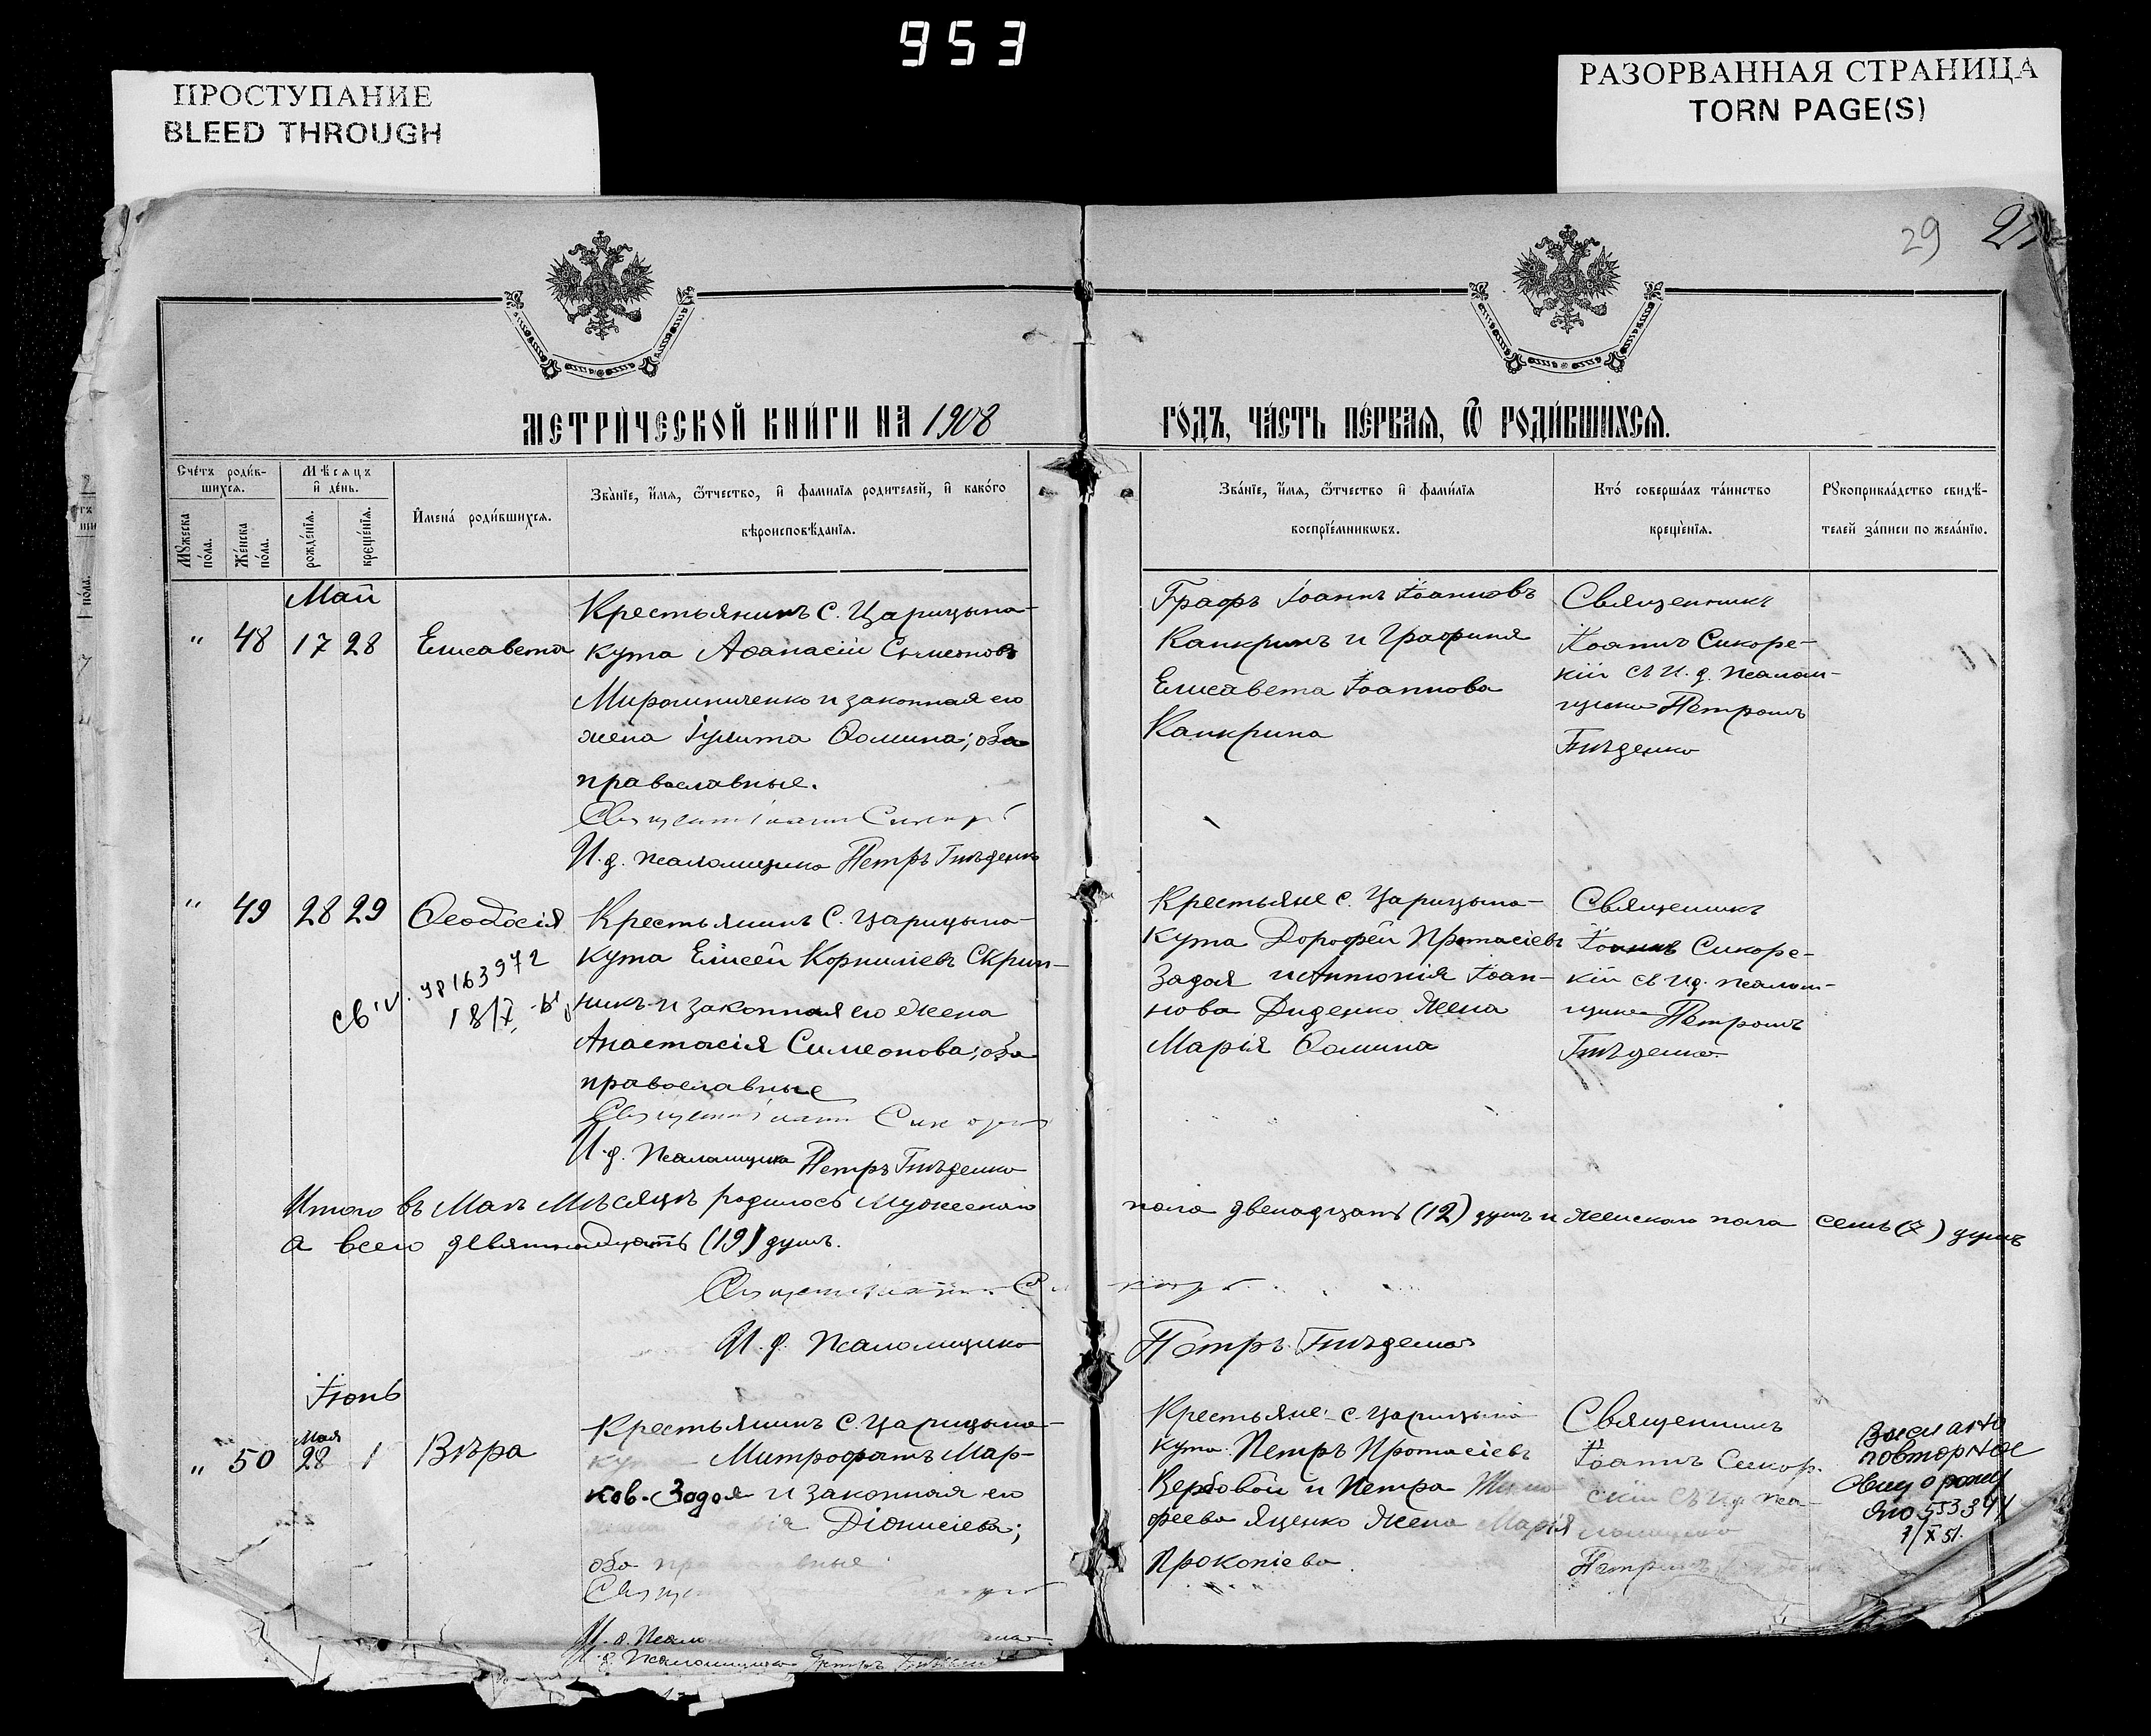 953
ПРОСТУПАНИЕ
BLEED THROUGH
РАЗОРВАННАЯ СТРАНИЦА
TORN PAGE(S)
29
МЕТРИ́ЧЕСКОЙ КНИ́ГИ НА 1908
ГО́ДЪ, ЧА́СТЬ ПЕ́РВАѦ, Ѿ РОДИ́ВШИХСѦ.
Сче́тъ роди́в-
шихсѧ.
Мѣ́сѧцъ
и҆ де́нь.
Мꙋжеска по́ла.
Же́нска по́ла.
рожде́нїѧ.
креще́нїѧ.
И҆мена̀ роди́вшихсѧ.
Зва́нїе, и҆́мѧ, ѻ҆́тчество, и҆ фамилїѧ родителей, и҆ како́го
вѣроисповѣ́данїѧ.
Зва́нїе, и҆́мѧ, ѻ҆́тчество и҆ фами́лїѧ
воспрїе́мникѡвъ.
Кто́ соверша́лъ та́инство
креще́нїѧ.
Рꙋкоприкла́дство свидѣ́-
телей за́писи по жела́нїю.
Май
" 48 17 28 Елисавета
Крестьянинъ с. Царицына-
кута Аѳанасій Симеоновъ
Мирошниченко и законная его
жена Іулита Ѳомина; оба
православные.
И. д. псаломщика Петръ Гнѣденко
Графъ Іоаннъ Іоанновъ
Канкринъ и Графиня
Елисавета Іоаннова
Канкрина
Священникъ
Іоаннъ Сикорс-
кій съ и. д. псалом-
щика Петромъ
Гнѣденко
" 49 28 29 Ѳеодосія
18/X
Крестьянинъ с. Царицына-
кута Елисей Корниліевъ Скрип-
никъ и законная его жена
Анастасія Симеонова; оба
православные
И. д. Псаломщика Петръ Гнѣденко
Крестьяне с. Царицына-
кута Дороѳей Протасіевъ
Задоя и Антонія Іоан-
нова Диденко жена
Марія Ѳомина
Священникъ
Іоаннъ Сикорс-
кій съ и.д. псалом-
щика Петромъ
Гнѣденко.
Итого въ Маѣ Мѣсяцѣ родилось мужескаго
пола двенадцать (12) душъ и женскаго пола семь (7) душъ
а всего девятнадцать (19) душъ.
И. д. Псаломщика
Петръ Гнѣденко
Іюнь
Мая
" 50 28 1 Вѣра
Крестьянинъ с. Царицына-
кута Митрофанъ Мар-
ков Задоя и законная его
Діонисіева;
оба православные
И. д. Псаломщика Петръ Гнѣденко
Крестьяне с. Царицына
кута Петръ Протасіевъ
Вербовой и Петра
феева Яценко жена Марія
Прокопіева
Священникъ
Іоаннъ Сикор-
скій съ и.д. пса-
ломщика
Петромъ
повторное